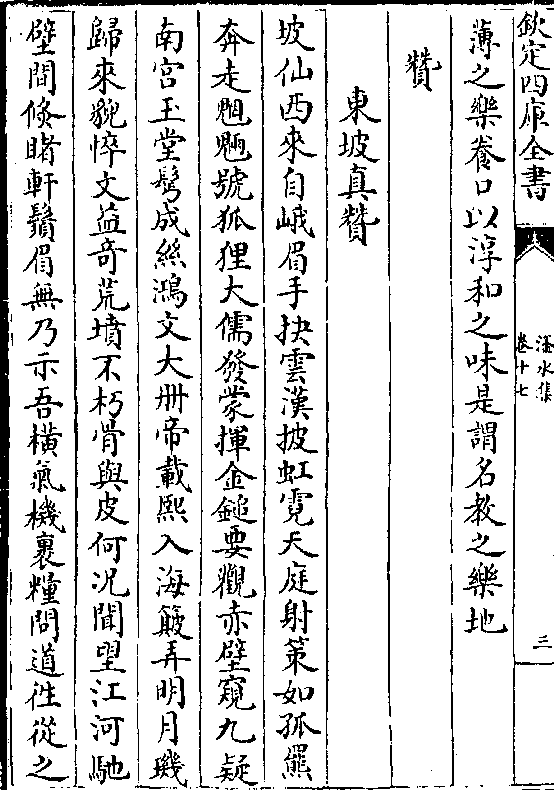 欽定四庫全書
滏水集
卷十七
三
薄之樂養口以淳和之味是謂名教之樂地
贊
東坡真贊
坡仙西來自峨眉手抉雲漢披虹霓天庭射策如孤羆
奔走魍魎號狐狸大儒發蒙揮金鎚要觀赤壁窺九疑
南宮玉堂鬢成絲鴻文大册帝載熙入海簸弄明月璣
歸來貌悴文益奇荒墳不朽骨與皮何况聞望江河馳
壁間倏睹軒鬚眉無乃示吾橫氣機裹糧問道徃從之